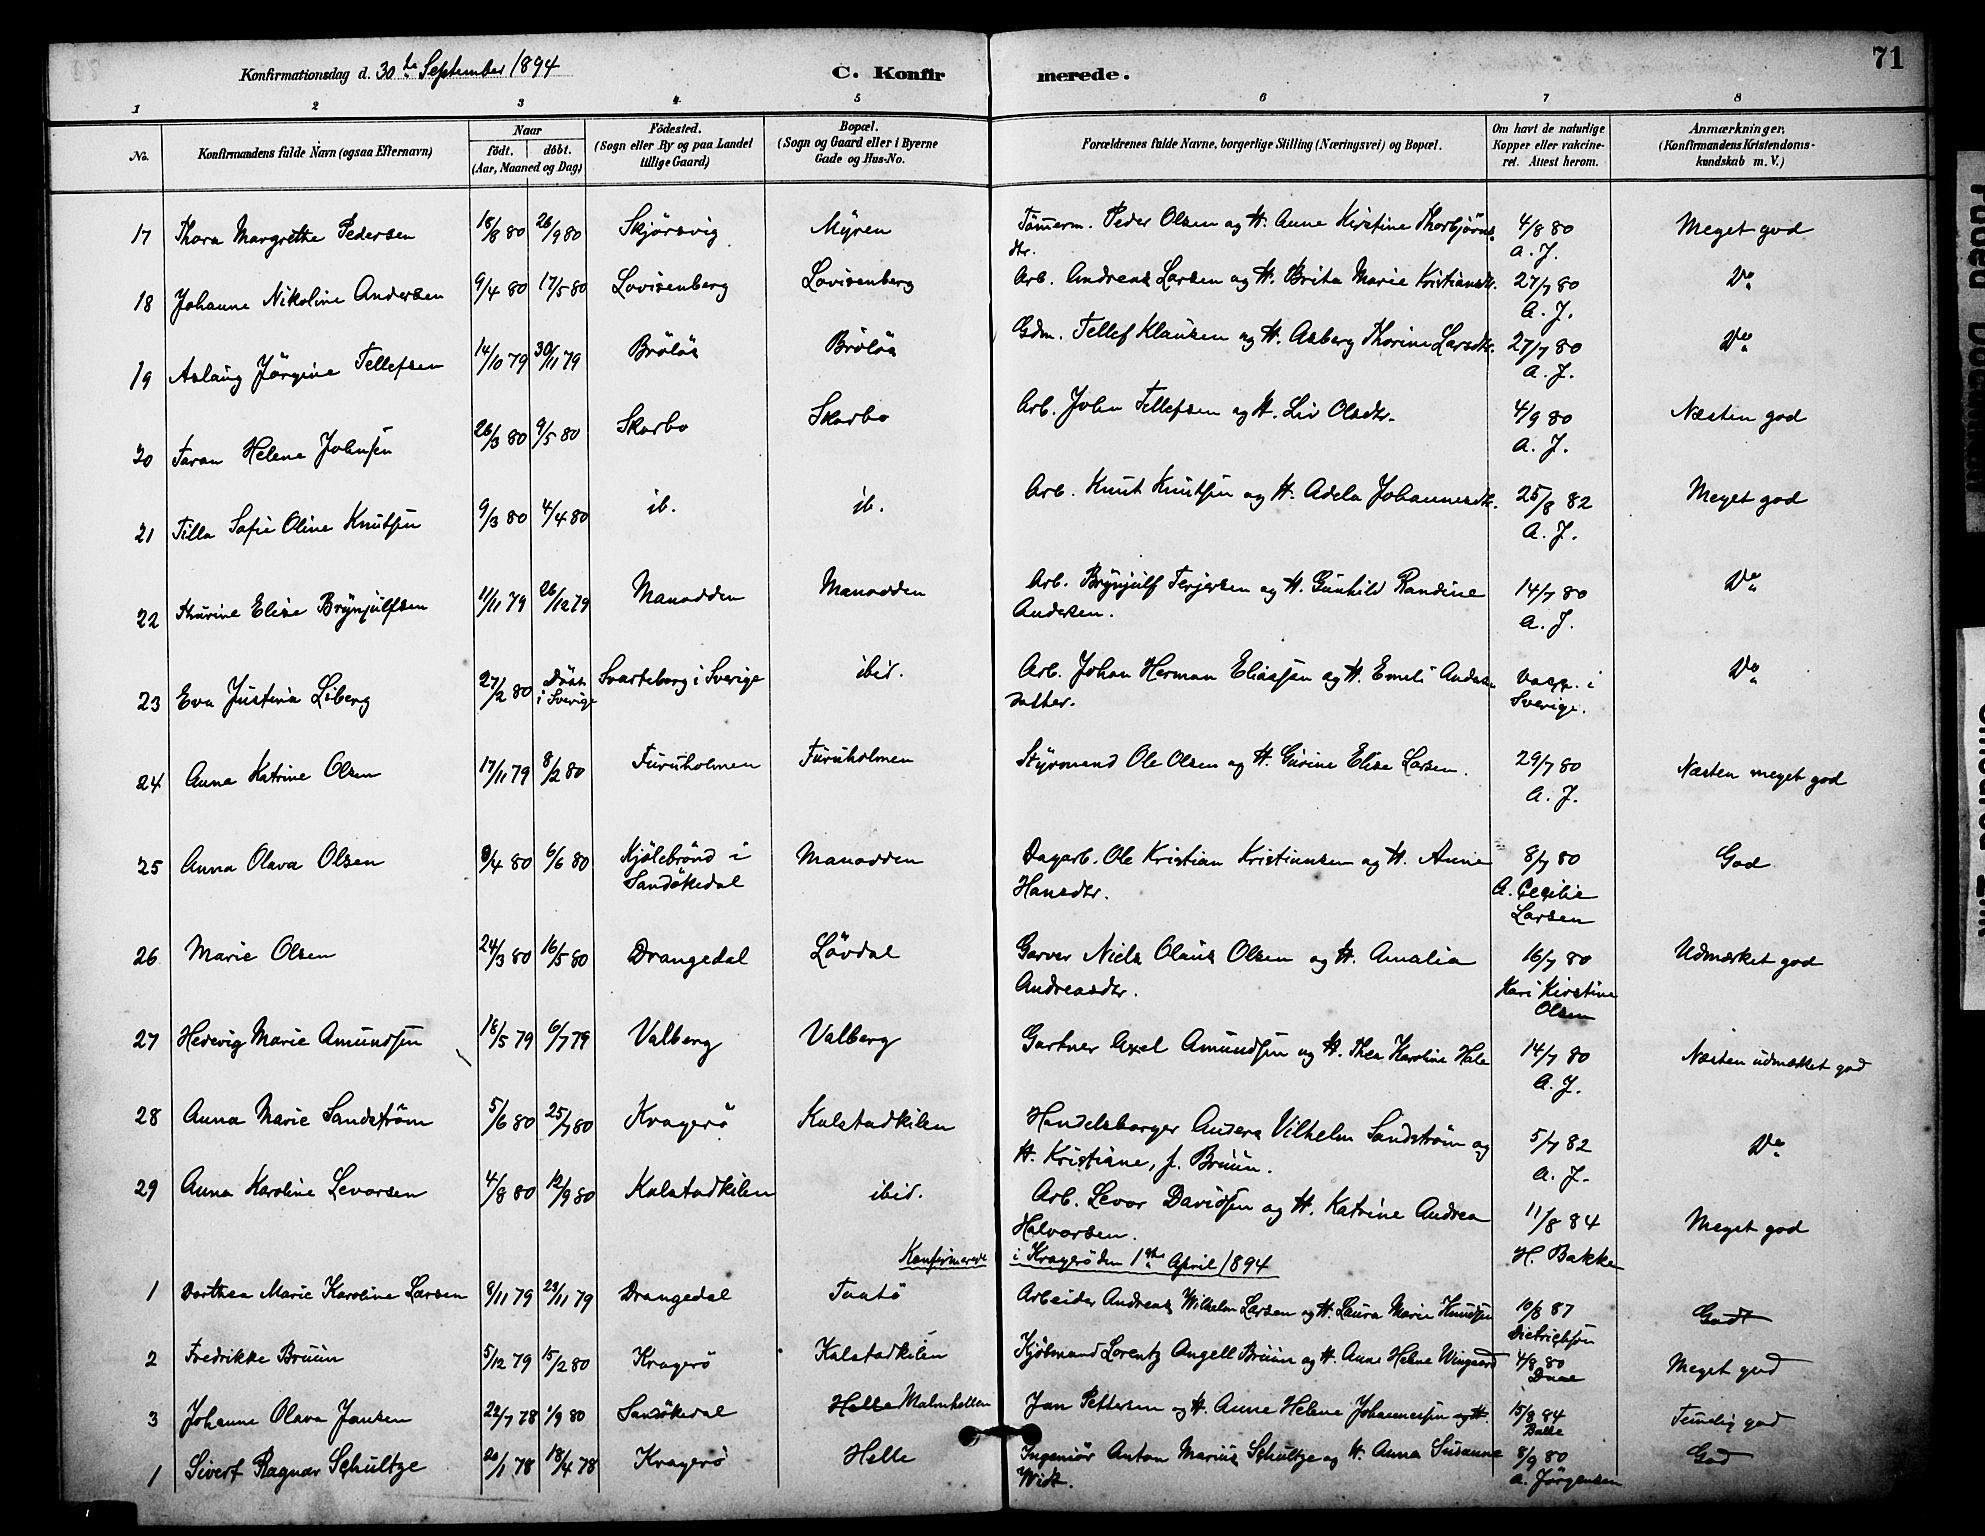 71
Konfirmationsdag d. 30te September 1894
C. Konfirmerede.
1 2 3 4 5 6 7 8
No.
Konfirmandens fulde Navn (ogsaa Efternavn)
Naar
födt. döbt.
(Aar, Maaned og Dag)
Födested.
(Sogn eller By og paa Landet
tillige Gaard)
Bopæl.
(Sogn og Gaard eller i Byerne
Gade og Hus-No.
Forældrenes fulde Navne, borgerlige Stilling (Næringsvei) og Bopæl.
Om havt de naturlige
Kopper eller vakcine-
ret. Attest herom.
Anmærkninger,
(Konfirmandens Kristendoms-
kundskab m. V.)
17 Thora Margrethe Pedersen 18/8 80 26/9 80 Skjörsvig Myren Tömerm. Peder Olsen og H. Anne Kirstine Thorbjörns- 4/8 80 Meget god
dtr. A. J.
18 Johanne Nikoline Andersen 9/4 80 17/5 80 Lovisenberg Lovisenberg Arb. Andreas Larsen og H. Brita Marie Kristiansdtr. 27/7 80 Do
A. J.
19 Aslaug Jörgine Tellefsen 14/10 79 30/11 79 Bröløs Bröløs Gdm. Tellef Klausen og H. Asberg Thorine Larsdtr. 27/7 80 Do
A. J.
20 Taran Helene Johnsen 26/3 80 9/5 80 Skarbo Skarbo Arb. John Tellefsen og H. Liv Olsdtr. 4/9 80 Næsten god
A. J.
21 Tilla Sofie Oline Knutsen 9/3 80 4/4 80 ib. ib. Arb. Knut Knutsen og H. Adela Johannesdtr. 25/8 82 Meget god
A. J.
22 Thurine Elise Brynjulfsen 11/11 79 26/12 79 Manodden Manodden Arb. Brynjulf Terjersen og H. Gunhild Randine 14/7 80 Do
Andersen. A. J.
23 Eva Justina Liberg 27/2 80 Döbt Svarteborg i Sverige ibid. Arb. Johan Herman Eliassen og H. Emeli Anders- vacc. i Do
i Sverige datter. Sverige.
24 Anna Katrine Olsen 17/11 79 8/2 80 Furuholmen Furuholmen Styrmand Ole Olsen og H. Gurine Elise Larsen. 29/7 80 Næsten meget god
A. J.
25 Anna Olava Olsen 8/4 80 6/6 80 Kjölebrönd i Manodden Dagarb. Ole Kristian Kristiansen og H. Anne 8/7 80 God
Sandökedal Hansdtr. A. Cecilie
Larsen
26 Marie Olsen 24/3 80 16/5 80 Drangedal Lövdal Garver Niels Olaus Olsen og H. Amalia 16/7 80 Udmærket god
Andreasdtr. Kari Kirstine
Olsen
27 Hedevig Marie Amundsen 18/5 79 6/7 79 Valberg Valberg Gartner Axel Amundsen og H. Thea Karoline Hals 14/7 80 Næsten udmærket god
A. J.
28 Anna Marie Sandström 5/6 80 25/7 80 Kragerö Kalstadkilen Handelsborger Anders Vilhelm Sandström og 5/7 82 Do
H. Kristiane, f. Bruun. A. J.
29 Anna Karoline Levorsen 4/8 80 12/9 80 Kalstadkilen ibid. Arb. Levor Davidsen og H. Katrine Andrea 11/8 84 Meget god
Halvorsen. H. Bakke
Konfirmerede i Kragerö den 1ste April 1894
1 Dorthea Marie Karoline Larsen 8/11 79 23/11 79 Drangedal Taatö Arbeider Andreas Wilhelm Larsen og H. Laura Marie Knudsen 10/8 87 Godt
Dietrichson
2 Fredrikke Bruun 5/12 79 15/2 80 Kragerö Kalstadkilen Kjöbmand Lorentz Angell Bruun og H. Anne Helene Wingaard 4/8 80 Meget god
3 Johanne Olava Jansen 22/7 78 1/9 80 Sandökedal Helle Malmhellen Jan Pettersen og H. Anne Helene Johannesen og H. 15/8 84 Temelig god
1 Sivert Ragnar Schultze 20/1 78 18/4 78 Kragerö Helle Ingeniör Anton Marius Schultze og H. Anna Susanne 8/9 80 God
Widt. A. Jörgensen